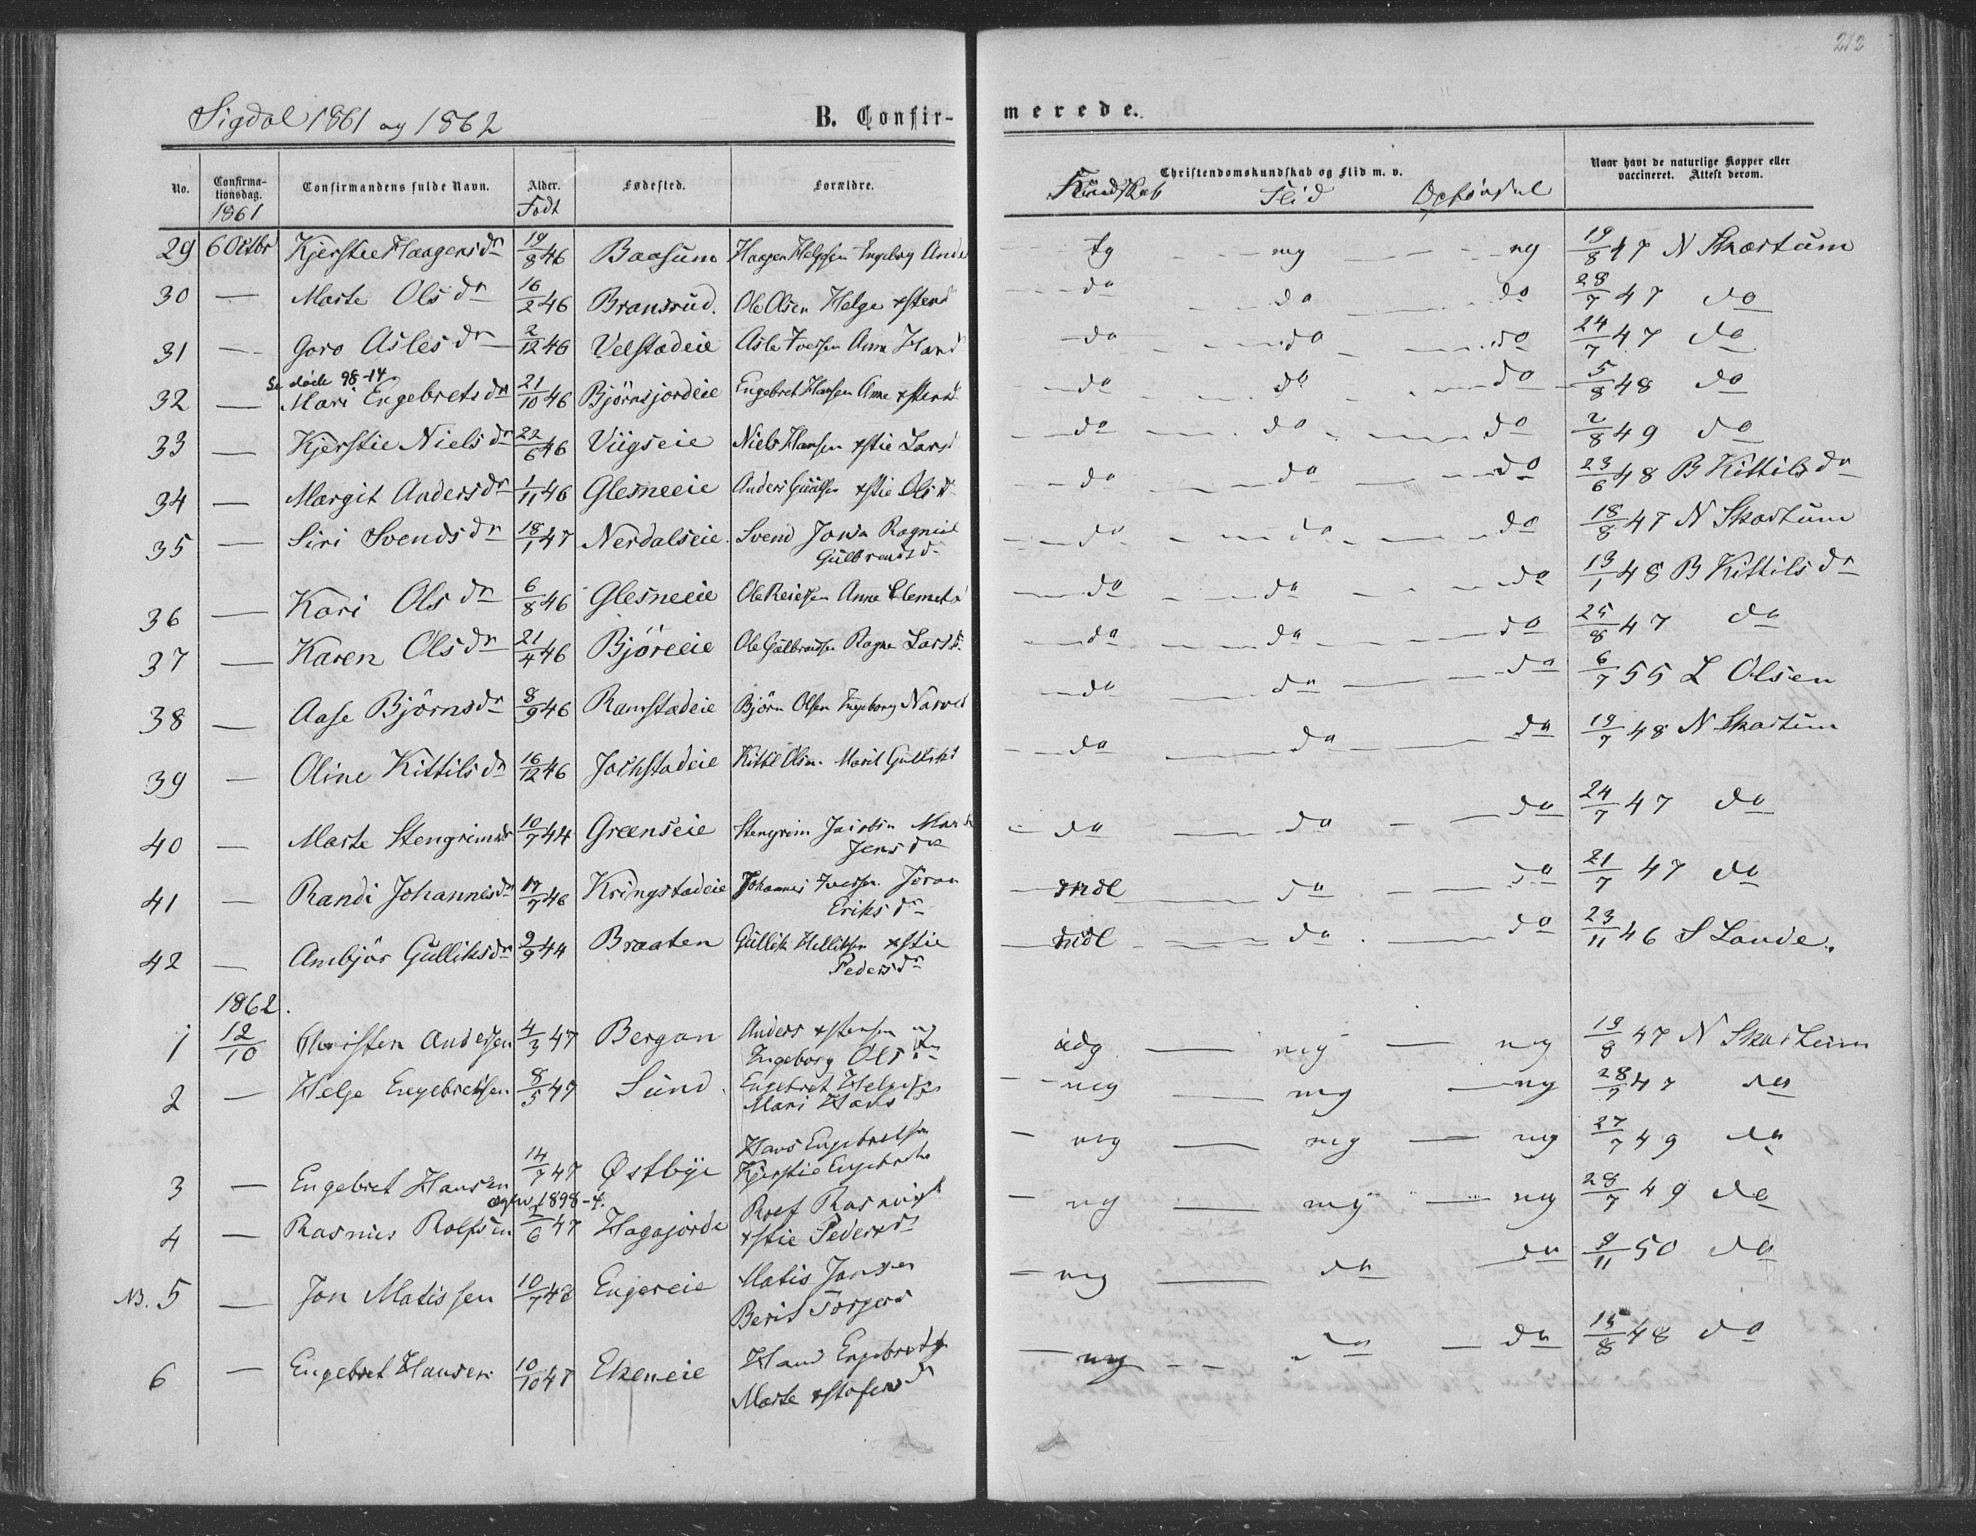 212
Sigdal 1861 og 1862 B. Confir- merede.
No. Confirma-tionsdag. Confirmandens fulde Navn. Alder. Fødested. Forældre. Christendomskundskab og Flid m. v. Naar havt de naturlige Kopper eller vaccineret. Attest derom.
1861 Født Kundskab Flid Opførsel
29 6 Octbr Kjerstie Haagensdr 19/8 46 Baasum Haagen Helgesen Ingeborg Anders tg mg mg 19/8 47 N Skartum
30 — Marte Olsdr 16/2 46 Bransrud. Ole Olsen Helge xstens do do do 28/7 47 do
31 — Goro Aslesdr 2/12 46 Velstadeie Asle Iversen Anne Hansd do do do 24/7 47 do
Se døde 98-14
32 — Mari Engebretsdr 21/10 46 Bjørnsjordeie Engebret Hansen Anne xstensd do do do 5/8 48 do
33 — Kjerstie Nielsdr 22/6 46 Viigseie Niels Hansen xstie Larsd do do do 2/8 49 do
34 — Margit Andersdr 1/11 46 Glesneeie Anders xstie Olsd do do do 23/6 48 B Kittilsdr
35 — Siri Svendsdr 18/1 47 Nerdalseie. Svend Jonsn Ragnild Gulbrandsd do do do 18/8 47 N Skartum
36 — Kari Olsdr 6/8 46 Glesneeie Ole Reiersen Anne Clemetsd do do do 13/1 48 B Kittilsdr
37 — Karen Olsdr 21/4 46 Bjøreeie Ole Gulbrandsen Ragne Larsd. do do do 25/8 47 do
38 — Aase Bjørnsdr 8/9 46 Ramstadeie Bjørn Olsen Ingeborg Narved do do do 6/7 55 L Olsen
39 — Oline Kittilsdr 16/12 46 Jochstadeie Kittil Olsen Marit Gulliksd do do do 19/7 48 N Skartum
40 — Marte Stengrimsdr 10/7 44 Greenseie Stengrim Jacobsn Jensdr do do do 24/7 47 do
41 — Randi Johannesdr 17/7 46 Kringstadeie Johannes Iversen Jøran Eriksdr mdl do do 21/7 47 do
42 — Ambjør Gulliksdr 9/9 44 Braaten Gullik Helliksen xstie Pedersdr mdl do do 23/11 46 S Lande.
1862.
1 12/10 Christen Andersen 4/3 47 Bergan Anders xstensen og Ingeborg Olsdr udg mg mg 19/8 47 N Skartum
2 — Helge Engebretsen 8/5 47 Sund. Engebret Helges Mari Hans mg mg mg 28/7 47 do
3 — Engebret Hansen 14/7 47 Østbye Hans Engebretsen Kjerstie Engebrets mg mg mg 27/7 49 do
1898-4.
4 — Rasmus Rolfsen 1/6 47 Hagajorde Rolf Rasmus xstie Pedersd mg mg mg 28/7 49 do
NB. 5 — Jon Matissen 10/7 48 Engereie Matis Jonsen Berit Torgers mg do do 9/11 50 do
6 — Engebret Hansen 10/10 47 Ekeneie Hans Engebretsn Marte xstofersdr mg do do 15/8 48 do